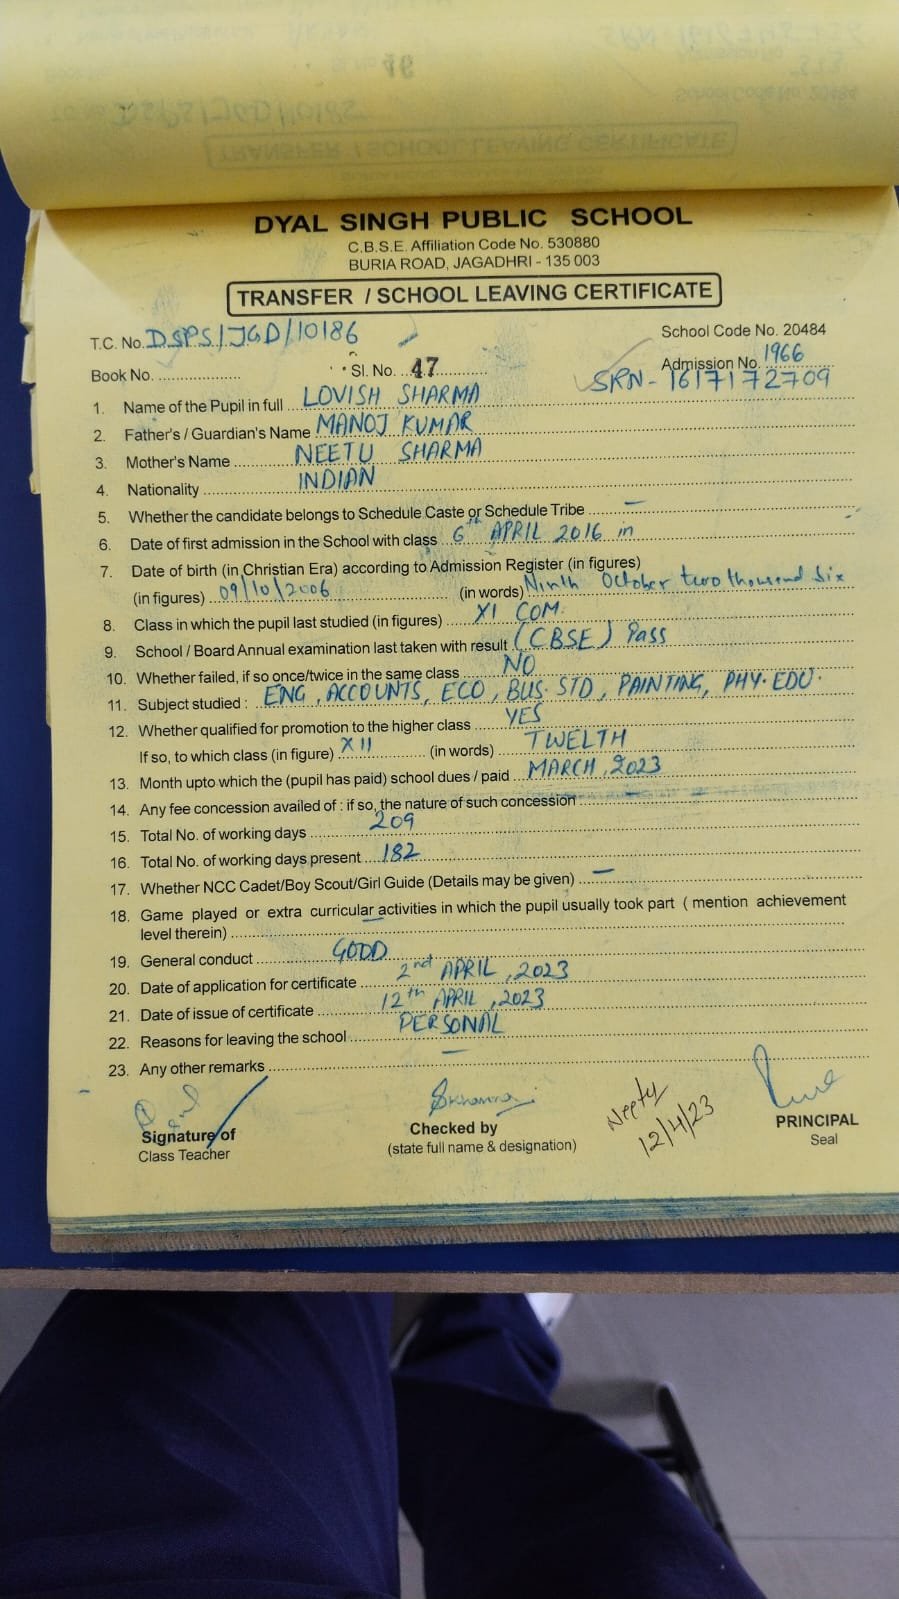 DYAL SINGH PUBLIC SCHOOL
C.B.S.E. Affiliation Code No. 530880
BURIA ROAD, JAGADHRI - 135 003
TRANSFER / SCHOOL LEAVING CERTIFICATE
T.C. No. DSPS/JGD/10186 School Code No. 20484
Book No. Sl. No. 47 Admission No. 1966
SRN - 1617172709
1. Name of the Pupil in full LOVISH SHARMA
2. Father's / Guardian's Name MANOJ KUMAR
3. Mother's Name NEETU SHARMA
4. Nationality INDIAN
5. Whether the candidate belongs to Schedule Caste or Schedule Tribe –
6. Date of first admission in the School with class 6th APRIL 2016 in
7. Date of birth (in Christian Era) according to Admission Register (in figures)
(in figures) 09/10/2006 (in words) Ninth October two thousand six
8. Class in which the pupil last studied (in figures) XI COM.
9. School / Board Annual examination last taken with result (CBSE) Pass
10. Whether failed, if so once/twice in the same class NO
11. Subject studied : ENG, ACCOUNTS, ECO, BUS. STD, PAINTING, PHY. EDU.
12. Whether qualified for promotion to the higher class YES
If so, to which class (in figure) XII (in words) TWELTH
13. Month upto which the (pupil has paid) school dues / paid MARCH, 2023
14. Any fee concession availed of : if so, the nature of such concession
15. Total No. of working days 209
16. Total No. of working days present 182
17. Whether NCC Cadet/Boy Scout/Girl Guide (Details may be given) –
18. Game played or extra curricular activities in which the pupil usually took part ( mention achievement
level therein)
19. General conduct GOOD
20. Date of application for certificate 2nd APRIL, 2023
21. Date of issue of certificate 12th APRIL, 2023
22. Reasons for leaving the school PERSONAL
23. Any other remarks –
Signature of Checked by Neetu PRINCIPAL
Class Teacher (state full name & designation) 12/4/23 Seal